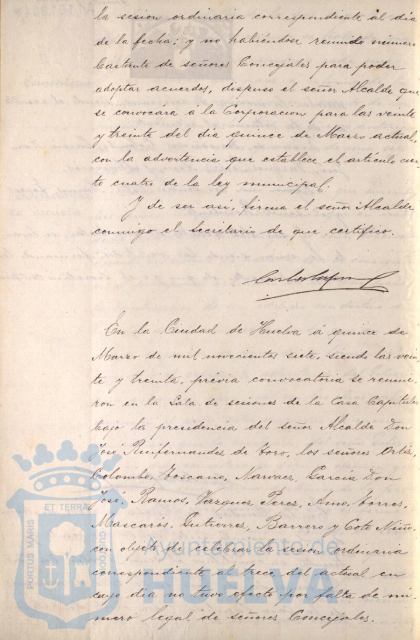 la sesion ordinaria correspondiente al dia
de la fecha; y no habiéndose reunido número
bastante de señores Concejales para poder
adoptar acuerdos, dispuso el señor Alcalde que
se convocára á la Corporacion para las veinte
y treinta del dia quince de Marzo actual,
con la advertencia que establece el articulo cien-
to cuatro de la ley municipal.
Y de ser asi, firma el señor Alcalde
conmigo el Secretario de que certifico.
En la Ciudad de Huelva á quince de
Marzo de mil novecientos siete, siendo las vein-
te y treinta, prévia convocatoria se reunie-
ron en la Sala de sesiones de la Casa Capitular
bajo la presidencia del señor Alcalde Don
José Ruifernandez de Toro, los señores Ortiz,
Colombo, Toscano, Narvaez, Garcia Don
José, Ramos, Vazquez Perez, Amo, Torres,
Mascarós, Gutierrez, Barrero y Coto Niño,
con objeto de celebrar la sesion ordinaria
correspondiente al trece del actual en
cuyo dia no tuvo efecto por falta de nú-
mero legal de señores Concejales.
PORTUS MARIS
ET TERRÆ
CUSTODIA
Ayuntamiento de
HUELVA